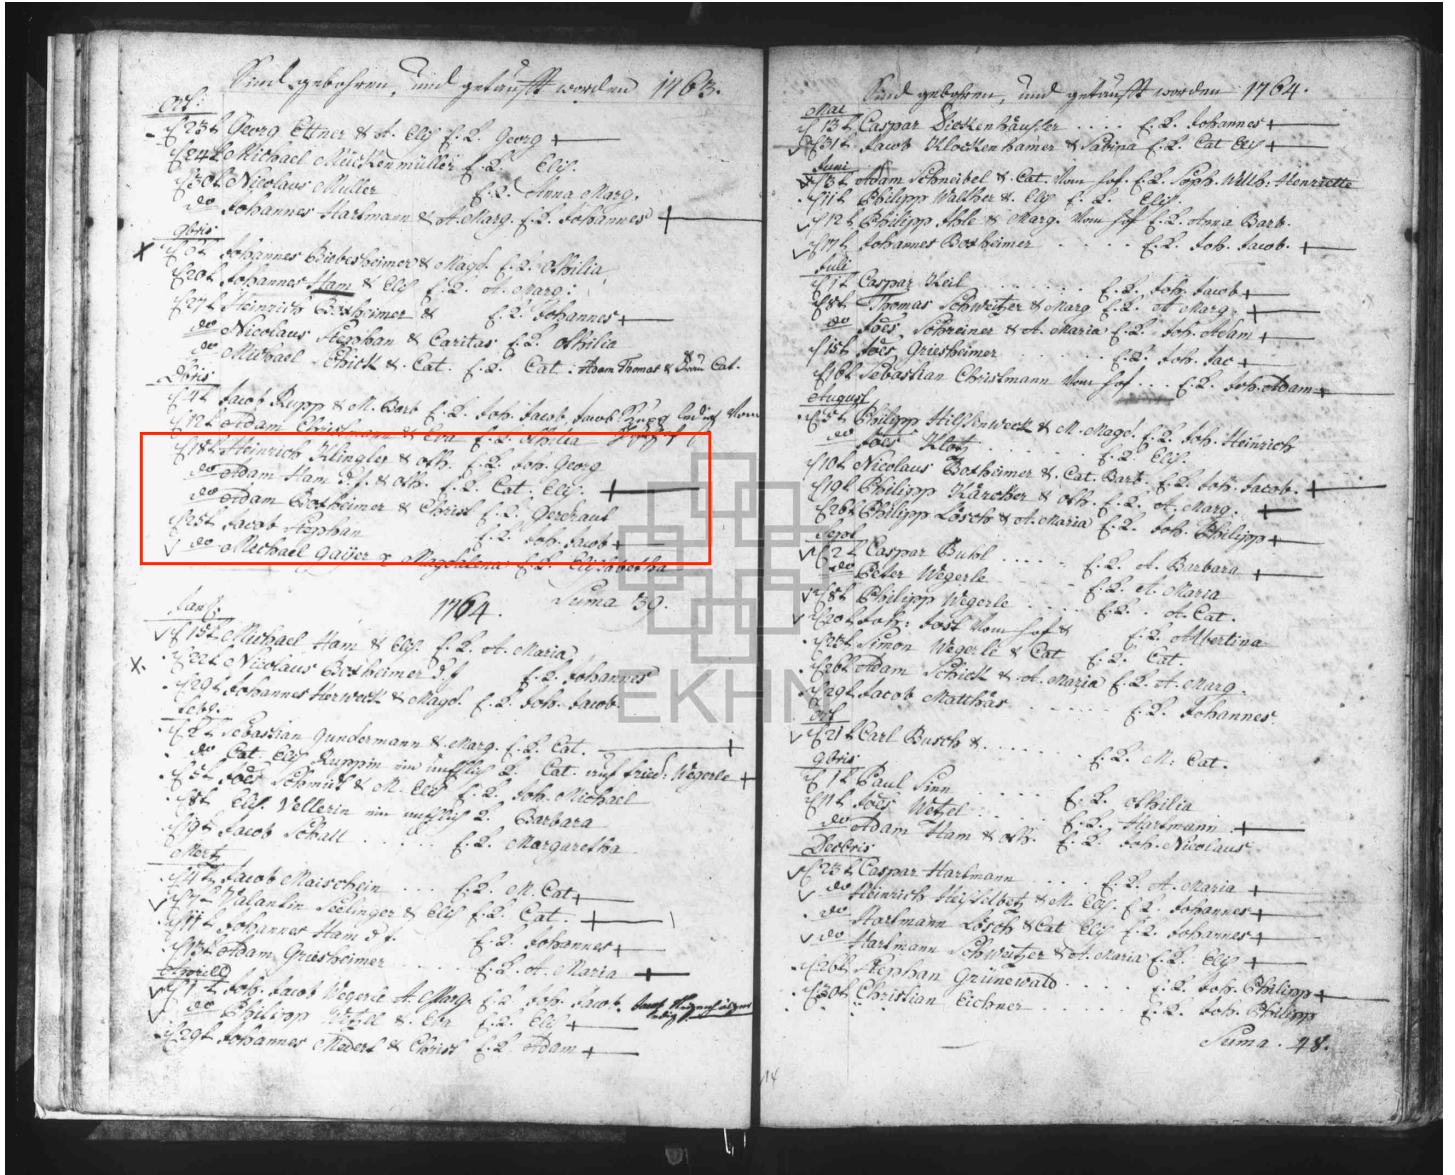 Sind gebohren, und getaufft worden 1763.
Oct:
23t Georg Ettner & A. Elis E. L. Georg
24t Michael Muckenmüller E. L. Elis.
30t Nicolaus Muller E. L. Anna Marg.
do Johannes Hartmann & A. Marg. E. L. Johannes
9bris
Johannes Biebesheimer & Magd. E. L. Othilia
20t Johannes Ham & Elis E. L. A. Marg:
27t Heinrich Botheimer & E. L. Johannes
do Nicolaus Stephan & Caritas E. L. Othilia
do Michael Schick & Cat. E. L. Cat: Adam Thomas & Cat.
Xbris
4t Jacob Rupp & M. Barb E. L. Joh. Jacob
12t Adam Christmann & Eva E. L. Othilia
18t Heinrich Klingler & Oth. E. L. Joh. Georg
do Adam Ham & Oth. E. L. Cat. Elis.
do Adam Botheimer & Christ E. L. Gerdraut
25t Jacob Stephan E. L. Joh. Jacob
do Michael Gaÿer & Magdalena E. L. Elisabetha
Suma 39.
1764.
Jan:
15t Michael Ham & Elis E. L. A. Maria
22t Nicolaus Botheimer E. L. Johannes
29t Johannes Horweck & Magd. E. L. Joh. Jacob
Febr:
Sebastian Gundermann & Marg. E. L. Cat.
do Cat. Elis Ruppin Cat. Wegerle
5t Joês Schmidt & M. Elis E. L. Joh. Michael
8t Elis. Vellerin Barbara
19t Jacob Schall E. L. Margaretha
Mertz
4t Jacob Maischein E. L. M. Cat
7t Valantin Seelinger & Elis E. L. Cat.
11t Johannes Ham E. L. Johannes
13t Adam Griesheimer E. L. A. Maria
Aprill
1t Joh. Jacob Wegerle A. Marg. E. L. Joh. Jacob.
do Philipp Wetzel & Eva E. L. Elis
29t Johannes Medert & Christ E. L. Adam
Sind gebohren, und getaufft worden 1764.
Mai
13t Caspar Dieckenhäusser E. L. Johannes
31t Jacob Klockenhamer & Sabina E. L. Cat Elis
Juni
3t Adam Schneibel & Cat. Vom hof E. L. Soph. Wilh. Henriette
11t Philipp Walther & Elis E. L. Elis.
12t Philipp Able & Marg. Vom hof E. L. Anna Barb.
17t Johannes Botheimer E. L. Joh. Jacob.
Juli
1t Caspar Keil E. L. Joh. Jacob
8t Thomas Schweitzer & Marg E. L. A Marg.
do Joês Schreiner & A. Maria E. L. Joh. Adam
15t Joês Griesheimer E. L. Joh. Jac
16t Sebastian Christmann Vom hof E. L. Joh. Adam
August
5t Philipp Hilssenweck & M. Magd. E. L. Joh. Heinrich
do Joês Klotz E. L. Elis.
10t Nicolaus Botheimer & Cat. Barb. E. L. Joh. Jacob.
19t Philipp Kärcher & Oth E. L. A. Marg.
26t Philipp Lösch & A. Maria E. L. Joh. Philipp
Sept
2t Caspar Buhl E. L. A. Barbara
do Peter Wegerle E. L. A. Maria
8t Philipp Wegerle E. L. A. Cat.
20t Joh: Jost Vom hof & E. L. Albertina
23t Simon Wegerle & Cat E. L. Cat.
26t Adam Schick & A. Maria E. L. A. Marg.
29t Jacob Matthäs E. L. Johannes
Oct
21t Carl Busch & E. L. M. Cat.
9bris
1t Paul Sinn E. L. Othilia
11t Joês Wetzel E. L. Hartmann
do Adam Ham & Oth. E. L. Joh. Nicolaus
Decbris
23t Caspar Hartmann E. L. A. Maria
do Heinrich Heisselbetz & M. Elis. E. L. Johannes
do Hartmann Lösch & Cat Elis E. L. Johannes
do Hartmann Schweitzer & A. Maria E. L. Elis
26t Stephan Grünewald E. L. Joh. Philipp
30t Christian Eichner E. L. Joh. Philipp
Suma . 48.
14
EKHN